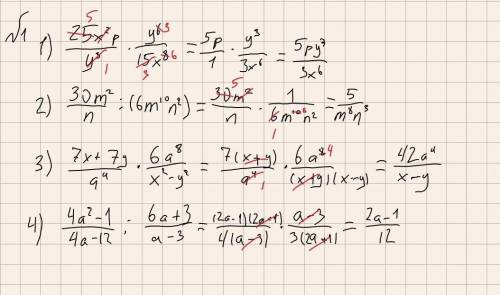 √1
1) 25x²p/y³ · y⁶/15x⁸ = 5p/1 · y³/3x⁶ = 5py³/3x⁶
2) 30m²/n : (6m¹⁰n²) = 30m²/n · 1/6m¹⁰n² = 5/m⁸n³
3) 7x+7y/a⁴ · 6a⁸/x²-y² = 7(x+y)/a⁴ · 6a⁸/(x+y)(x-y) = 42a⁴/x-y
4) 4a²-1/4a-12 : 6a+3/a-3 = (2a-1)(2a+1)/4(a-3) · a-3/3(2a+1) = 2a-1/12